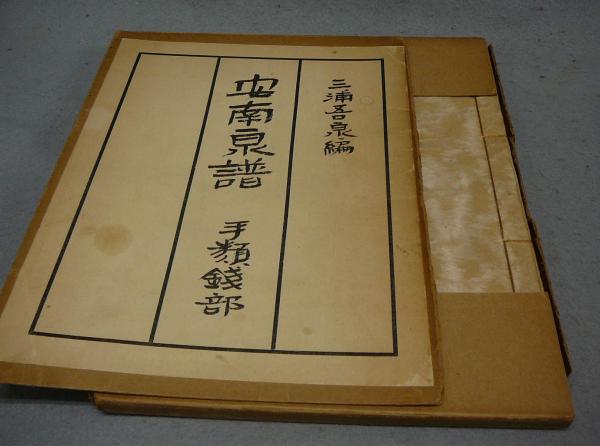 三浦吾泉編
安南泉譜
手類錢部